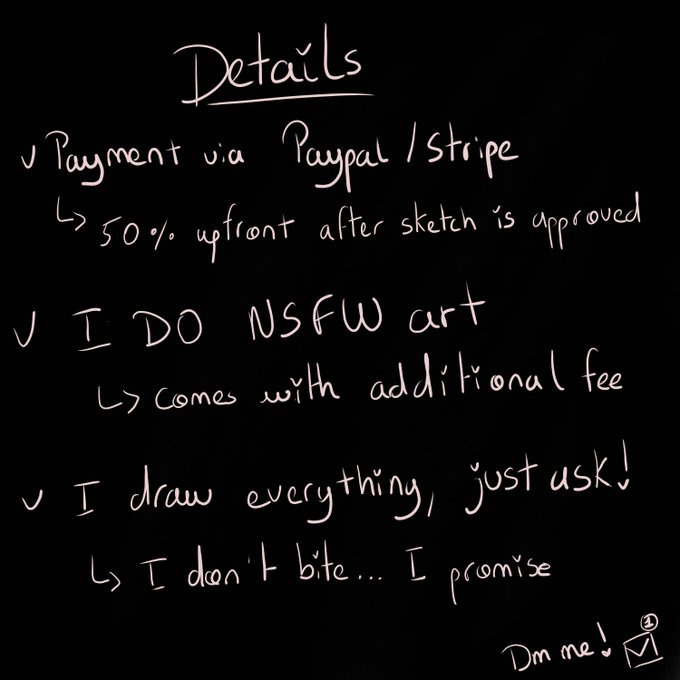 Details
Payment via Paypal / Stripe
50% upfront after sketch is approved
I DO NSFW art
comes with additional fee
I draw everything, just ask!
I don't bite... I promise
Dm me! 1